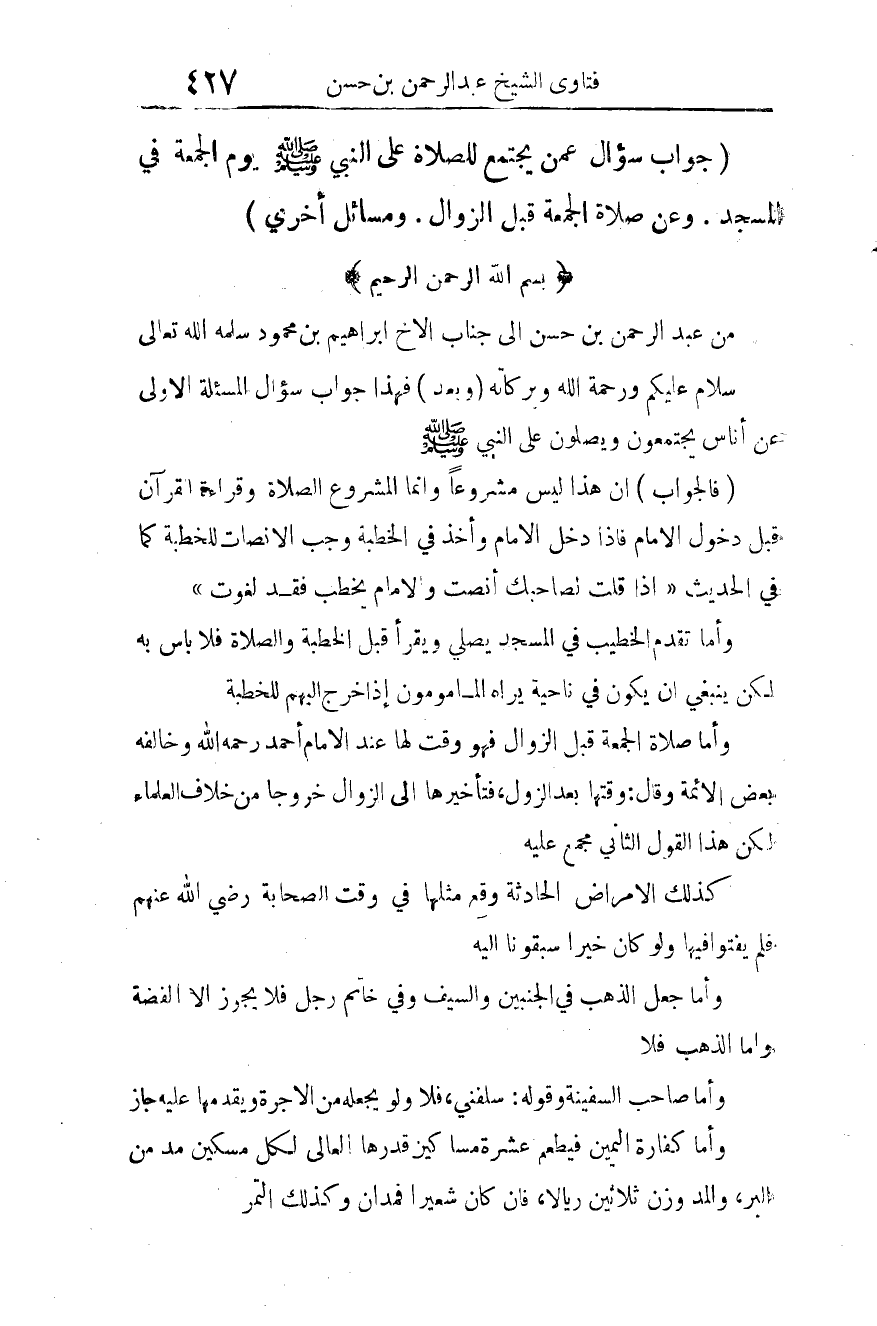 فتاوى الشيخ عبدالرحمن بن حسن ٤٢٧
( جواب سؤال عمن يجتمع للصلاة على النبي ﷺ يوم الجمعة في
المسجد . وعن صلاة الجمعة قبل الزوال . ومسائل أخري )
﴿ بسم الله الرحمن الرحيم ﴾
من عبد الرحمن بن حسن الى جناب الاخ ابراهيم بن محمود سلمه الله تعالى
سلام عليكم ورحمة الله وبركاته (وبعد ) فهذا جواب سؤال المسئلة الاولى
عن أناس يجتمعون ويصلون على النبي ﷺ
( فالجواب ) ان هذا ليس مشروعاً وانما المشروع الصلاة وقراءة القرآن
قبل دخول الامام فاذا دخل الامام وأخذ في الخطبة وجب الانصات للخطبة كما
في الحديث « اذا قلت لصاحبك أنصت والامام يخطب فقد لغوت »
وأما تقدم الخطيب في المسجد يصلي ويقرأ قبل الخطبة والصلاة فلا باس به
لكن ينبغي ان يكون في ناحية يراه المامومون إذا خرج اليهم للخطبة
وأما صلاة الجمعة قبل الزوال فهو وقت لها عند الامام أحمد رحمه الله وخالفه
بعض الائمة وقال: وقتها بعد الزول، فتأخيرها الى الزوال خروجا من خلاف العلماء
لكن هذا القول الثاني مجمع عليه
كذلك الامراض الحادثة وقع مثلها في وقت الصحابة رضي الله عنهم
فلم يفتوا فيها ولو كان خيرا سبقونا اليه
وأما جعل الذهب في الجنبين والسيف وفي خاتم رجل فلا يجوز الا الفضة
واما الذهب فلا
وأما صاحب السفينة وقوله: سلفني، فلا ولو يجعله من الاجرة ويقدمها عليه جاز
وأما كفارة اليمين فيطعم عشرة مساكين قدرها العالى لكل مسكين مد من
البر، والمد وزن ثلاثين ريالا، فان كان شعيرا فمدان وكذلك التمر